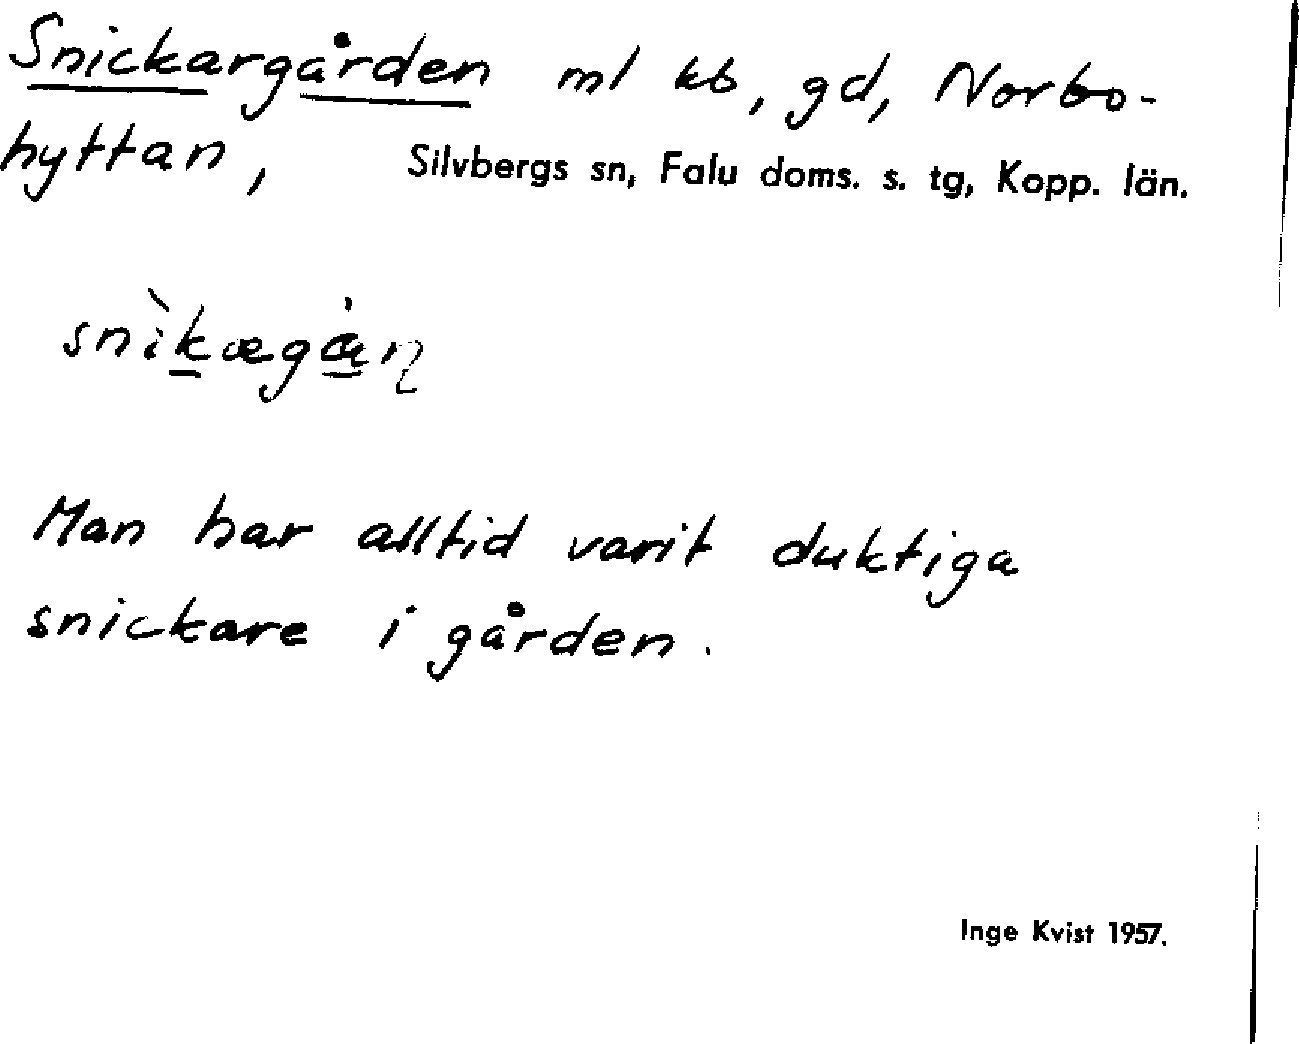 Snickargården ml kb, gd, Norbo-
hyttan, Silvbergs sn, Falu doms. s. tg, Kopp. län.
Man har alltid varit duktiga
snickare i gården.
Inge Kvist 1957.